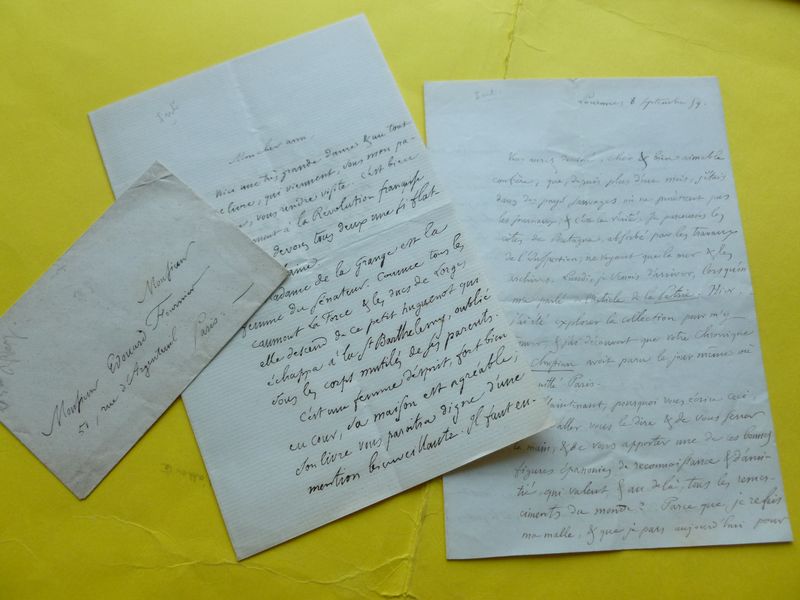 Mon cher ami
Voici une très grande dame & un tout
livre, qui viennent, sous mon pa-
vous rendre visite. C'est bien
à la Révolution française
devons tous deux une si flat
Madame de la Grange est la
femme du Sénateur. Comme tous les
Caumont La Force & les ducs de Lorges
elle descend de ce petit huguenot qui
échappa à la St Barthélemy, oublié
sous les corps mutilés de ses parents.
C'est une femme d'esprit, fort bien
en cour, sa maison est agréable;
son livre vous paraîtra digne d'une
mention bienveillante. Il faut en-
Monsieur
Monsieur Edouard Fournier
51, rue d'Argenteuil
Paris.
8 Septembre 59.
Vous aurez deviné, cher & bien aimable
confrère, que, depuis plus d'un mois, j'étais
dans des pays sauvages où ne pénètrent pas
les journaux, & c'est la vérité. Je parcourais les
côtes de Bretagne, absorbé par les travaux
de l'Inspection; ne voyant que la mer & les
archives. Lundi, je venais d'arriver, lorsqu'on
m'a parlé article de la Patrie. Hier
j'ai été explorer la collection pour m'a-
& j'ai découvert que votre Chronique
avait paru le jour même où
quitté Paris.
Maintenant, pourquoi vous écrire ceci,
aller vous le dire & de vous serrer
la main, & de vous apporter une de ces bonnes
figures épanouies de reconnaissance & d'ami-
tié, qui valent & au delà, tous les remer-
ciments du monde? Parce que, je refais
ma malle, & que je pars aujourd'hui pour